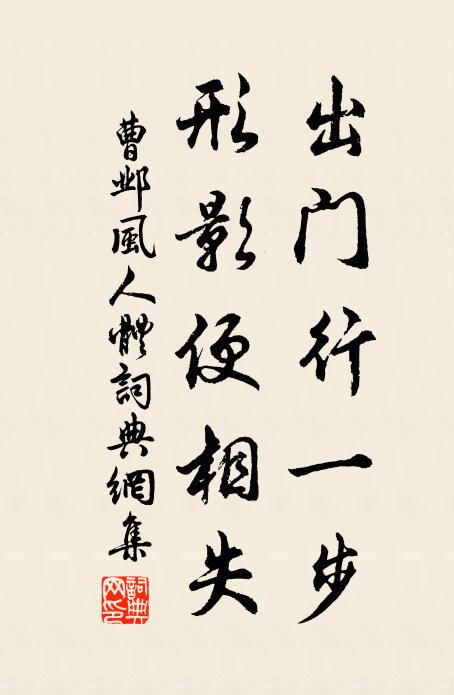 出门行一步
形影便相失
曹邺風人體詞典網集
詞典网印